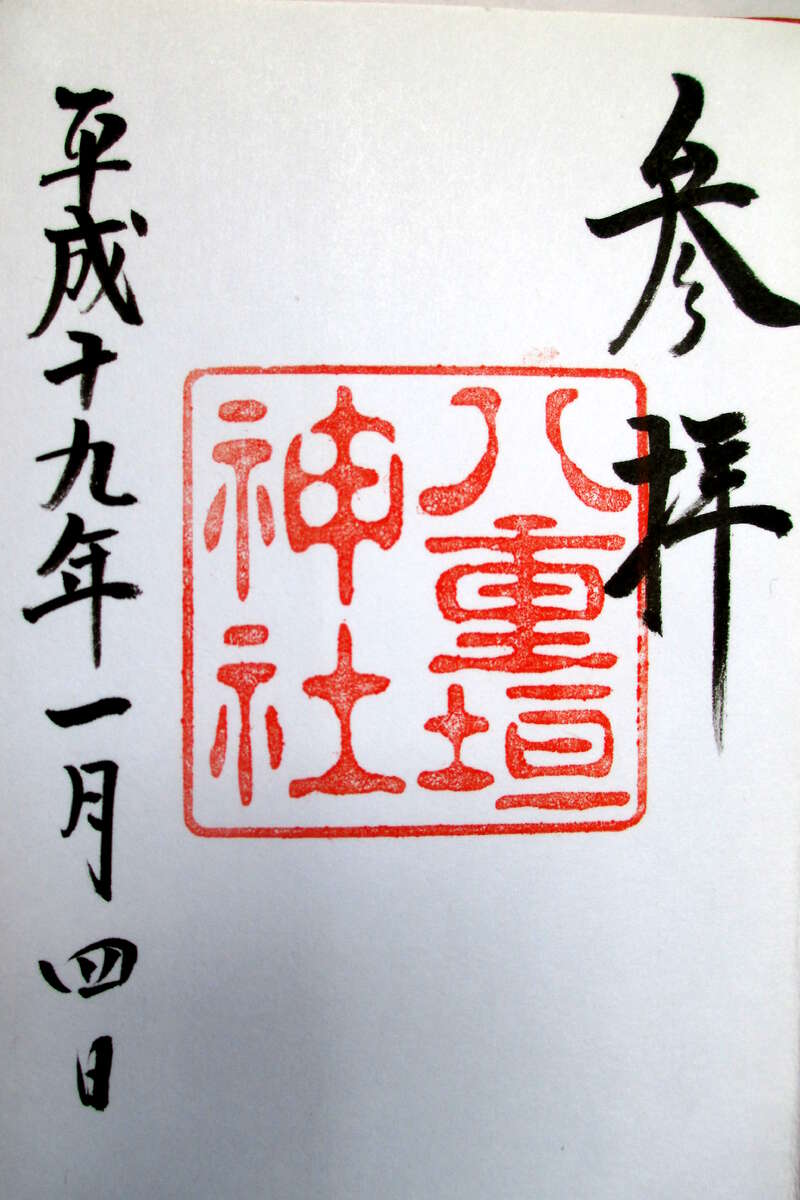 参拝
八重垣
神社
平成十九年一月四日